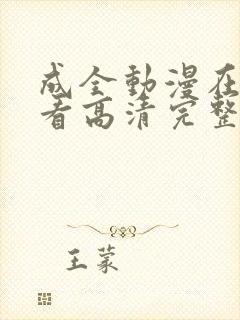 成全動漫在
看高清完整
王蒙